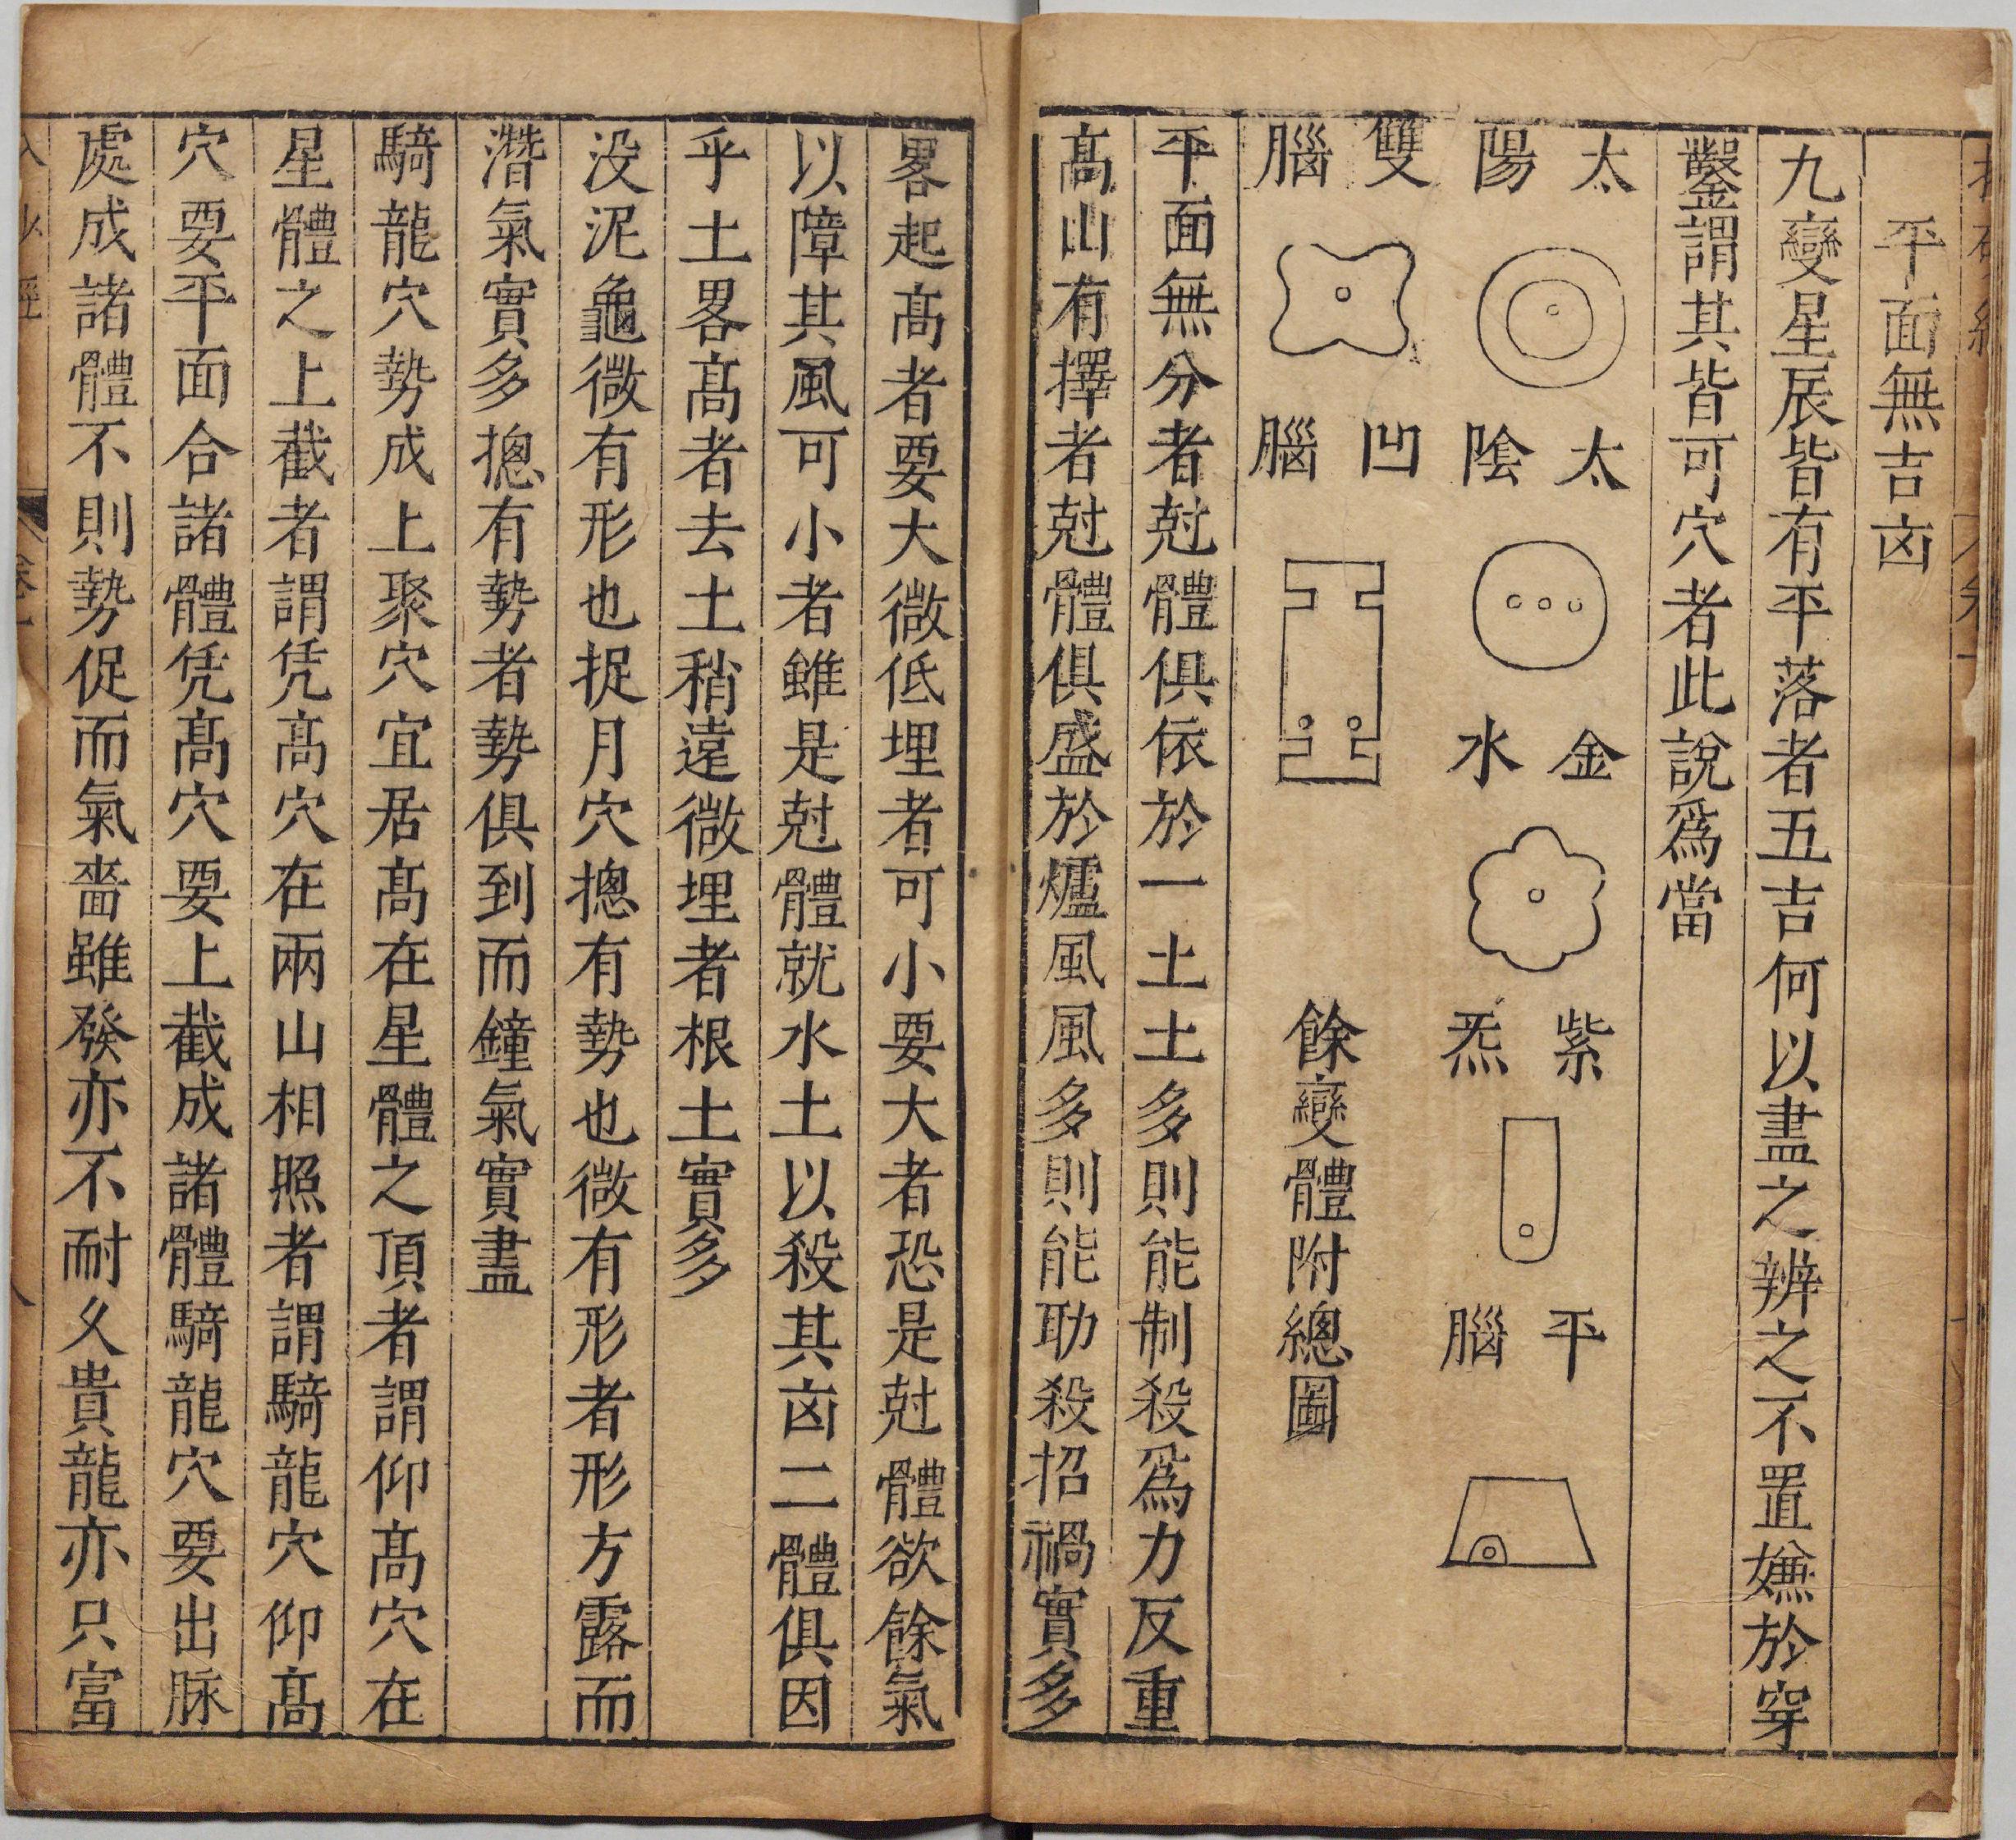 平面無吉凶
九變星辰皆有平落者五吉何以盡之辨之不置嫌於穿
鑿謂其皆可穴者此說爲當
太陽
太陰
金水
紫炁
平腦
雙腦
凹腦
餘變體附總圖
平面無分者尅體俱依於一土土多則能制殺爲力反重
高山有擇者尅體俱盛於爐風風多則能助殺招禍實多
畧起高者要大微低埋者可小要大者恐是尅體欲餘氣
以障其風可小者雖是尅體就水土以殺其凶二體俱因
乎土畧高者去土稍遠微埋者根土實多
没泥龜微有形也捉月穴摠有勢也微有形者形方露而
潛氣實多摠有勢者勢俱到而鐘氣實盡
騎龍穴勢成上聚穴宜居高在星體之頂者謂仰高穴在
星體之上截者謂凭高穴在兩山相照者謂騎龍穴仰高
穴要平面合諸體凭高穴要上截成諸體騎龍穴要出脉
處成諸體不則勢促而氣嗇雖發亦不耐久貴龍亦只富